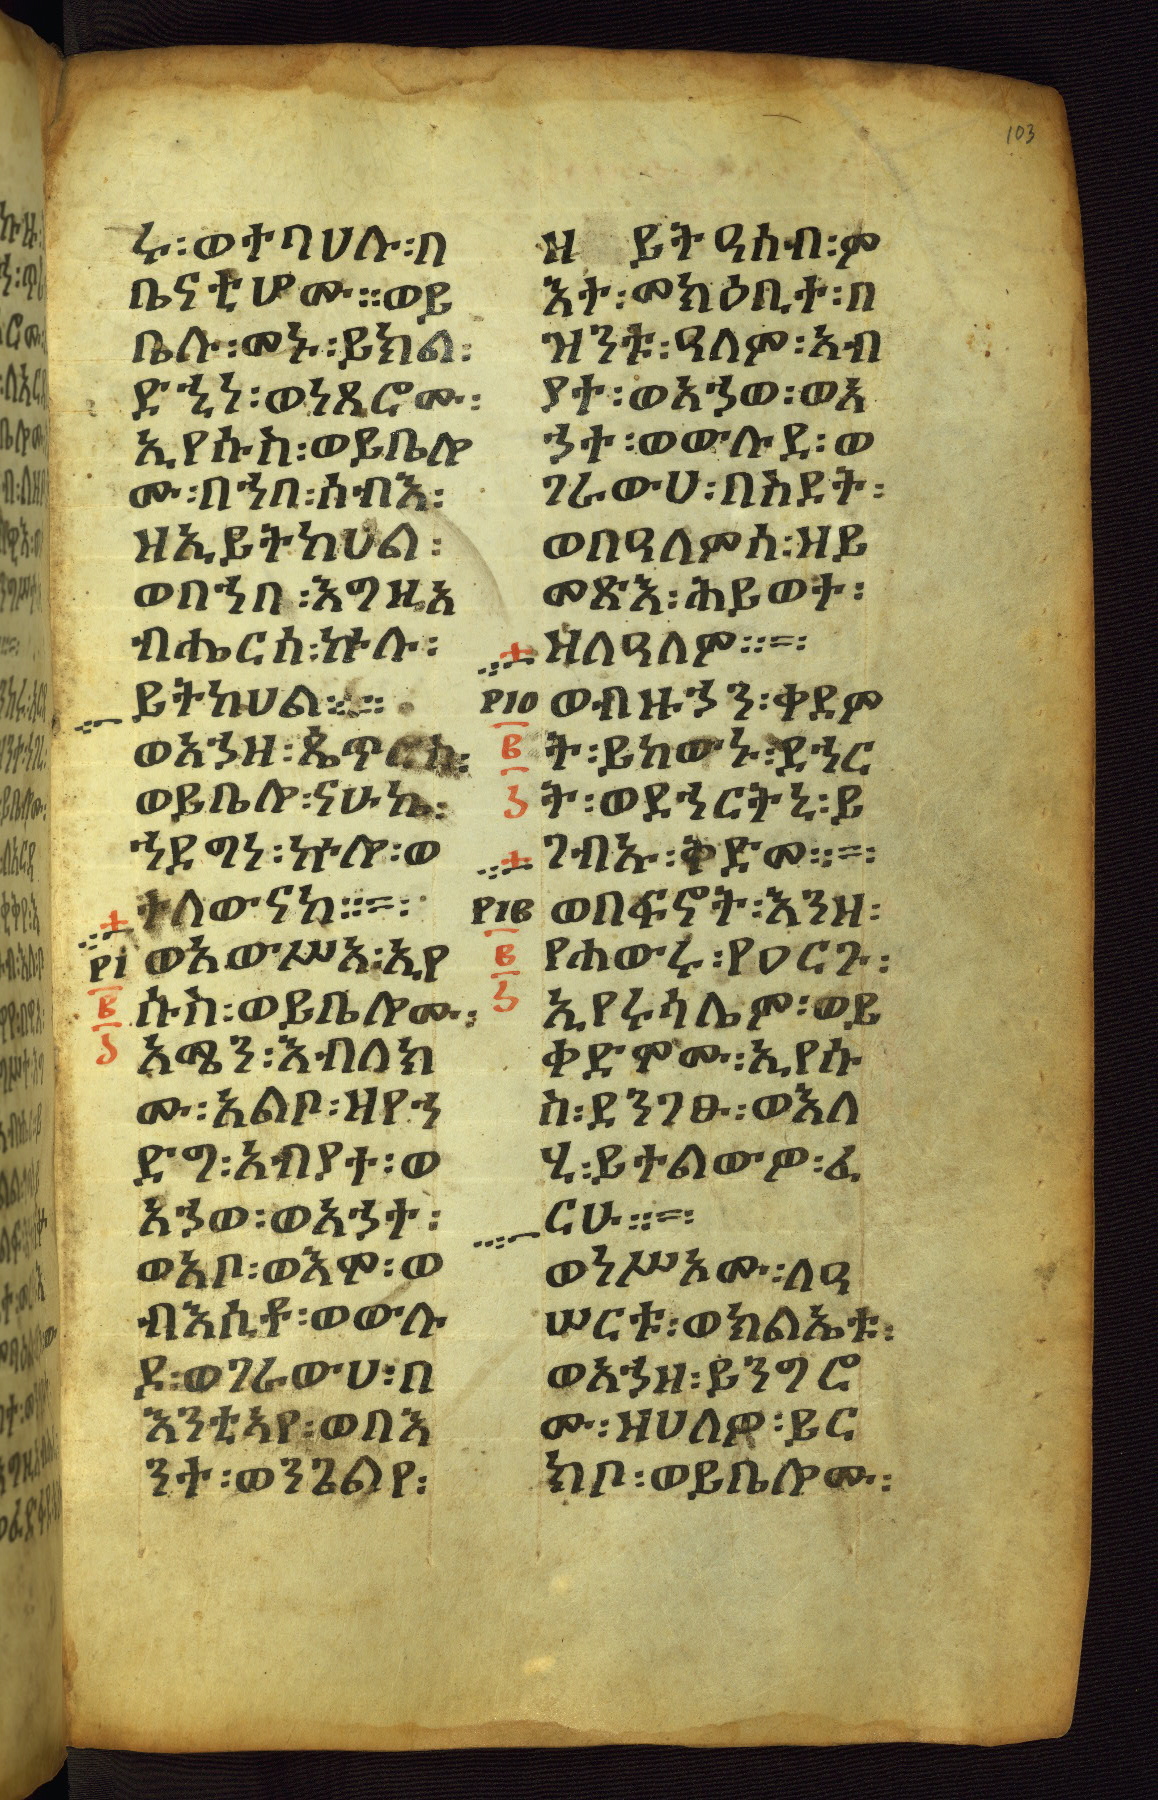 103
ሩ፡ወተባሀሉ፡በ
ቤናቲሆሙ፡፡ወይ
ቤሉ፡መኑ፡ይክል፡
ድኂነ፡ወነጸሮሙ፡
ኢየሱስ፡ወይቤሎ
ሙ፡በኀበ፡ሰብእ፡
ዝኢይትከሀል፡
ወበኀበ፡እግዚአ
ብሔርሰ፡ኵሉ፡
ይትከሀል፡፡
ወአኀዘ፡ጴጥሮስ፡
ወይቤሎ፡ናሁ፡ኬ፡
ኀደግነ፡ኵሎ፡ወ
ተለውናከ፡፡=፡
+
፻፲
፪
ወአውሥአ፡ኢየ
ሱስ፡ወይቤሎሙ፡
አማን፡እብለክ
ሙ፡አልቦ፡ዘየኀ
ድግ፡አብያተ፡ወ
አኀወ፡ወአኀተ፡
ወአቦ፡ወእሞ፡ወ
ብእሲቶ፡ወውሉ
ደ፡ወገራውሀ፡በ
እንቲአየ፡ወበእ
ንተ፡ወንጌልየ፡
ዘ ይትዓሰብ፡ም
እተ፡መክዕቢተ፡በ
ዝንቱ፡ዓለም፡አብ
ያተ፡ወአኀወ፡ወአ
ኀተ፡ወውሉደ፡ወ
ገራውሀ፡በስደት፡
ወበዓለምሰ፡ዘይ
መጽእ፡ሕይወተ፡
ዘለዓለም፡፡=፡
+
፻፲፩
፪
ወብዙኀን፡ቀደም
ት፡ይከውኑ፡ደኀር
ት፡ወደኀርትኒ፡ይ
ገብኡ፡ቅድመ፡፡=፡
+
፻፲፪
፪
ወበፍኖት፡እንዘ፡
የሐውሩ፡የዐርጉ፡
ኢየሩሳሌም፡ወይ
ቀድሞሙ፡ኢየሱ
ስ፡ደንገፁ፡ወእለ
ሂ፡ይተልውዎ፡ፈ
ርሁ፡፡=፡
ወነሥአሙ፡ለዓ
ሠርቱ፡ወክልኤቱ፡
ወአኀዘ፡ይንግሮ
ሙ፡ዘሀለዎ፡ይር
ክቦ፡ወይቤሎሙ፡